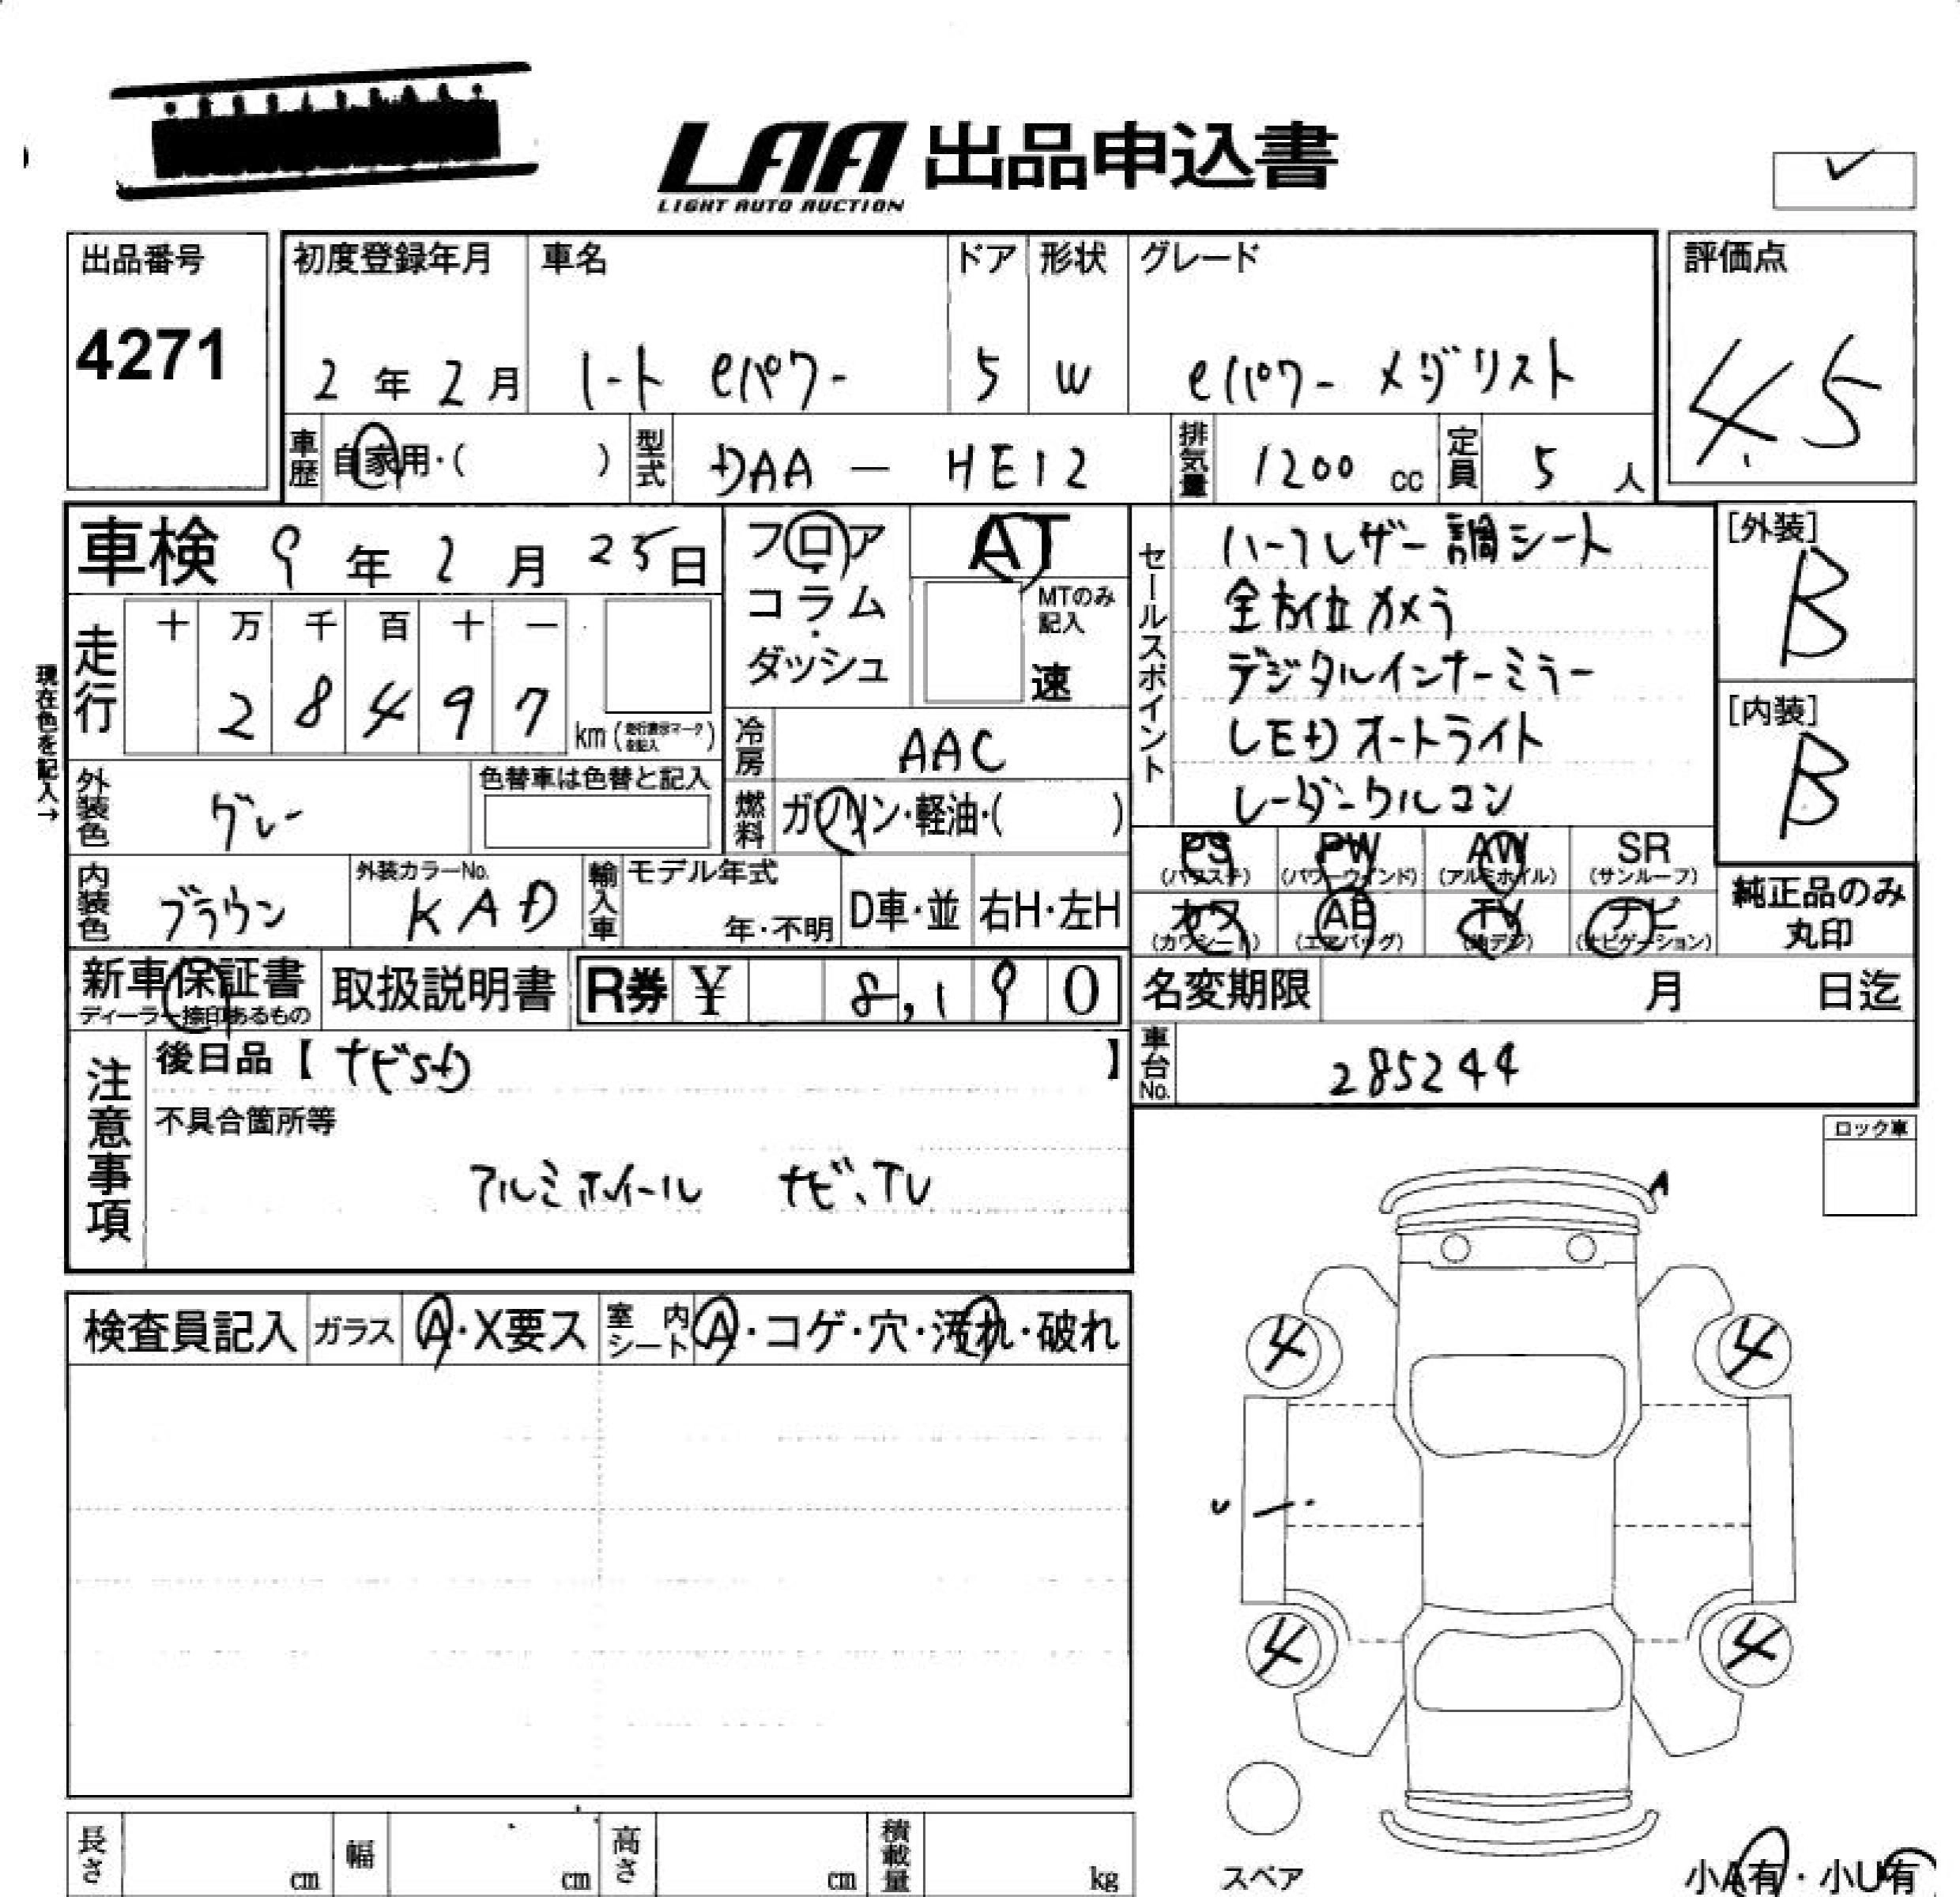 LAA 出品申込書
LIGHT AUTO AUCTION
出品番号
4271
初度登録年月
2年2月
車名
ノート eパワー
ドア
5
形状
W
グレード
eパワー メダリスト
評価点
4.5
車歴 自家用・( )
型式 DAA — HE12
排気量 1200 cc
定員 5 人
車検 9年2月25日
フロア・コラム・ダッシュ
AT
MTのみ記入
速
セールスポイント
ハーフレザー調シート
全方位カメラ
デジタルインナーミラー
LEDオートライト
レーダークルコン
[外装]
B
[内装]
B
現在色を記入→
走行
十 万 千 百 十 一
2 8 4 9 7
km (走行表示マークを記入)
冷房 AAC
燃料 ガソリン・軽油・( )
外装色 グレー
色替車は色替と記入
内装色 ブラウン
外装カラーNo.
KAD
輸入車
モデル年式
年・不明
D車・並
右H・左H
PS (パワステ)
PW (パワーウインド)
AW (アルミホイル)
SR (サンルーフ)
カワ (カワシート)
AB (エアバッグ)
TV (地デジ)
ナビ (ナビゲーション)
純正品のみ丸印
新車保証書
ディーラー捺印あるもの
取扱説明書
R券 ¥ 8,190
名変期限 月 日迄
車台No. 285244
注意事項
後日品【ナビSD】
不具合箇所等
アルミホイール ナビ、TV
ロック車
A
検査員記入
ガラス A・X要ス
室内シート A・コゲ・穴・汚れ・破れ
4 4
4 4
長さ cm
幅 cm
高さ cm
積載量 kg
スペア
小A有・小U有